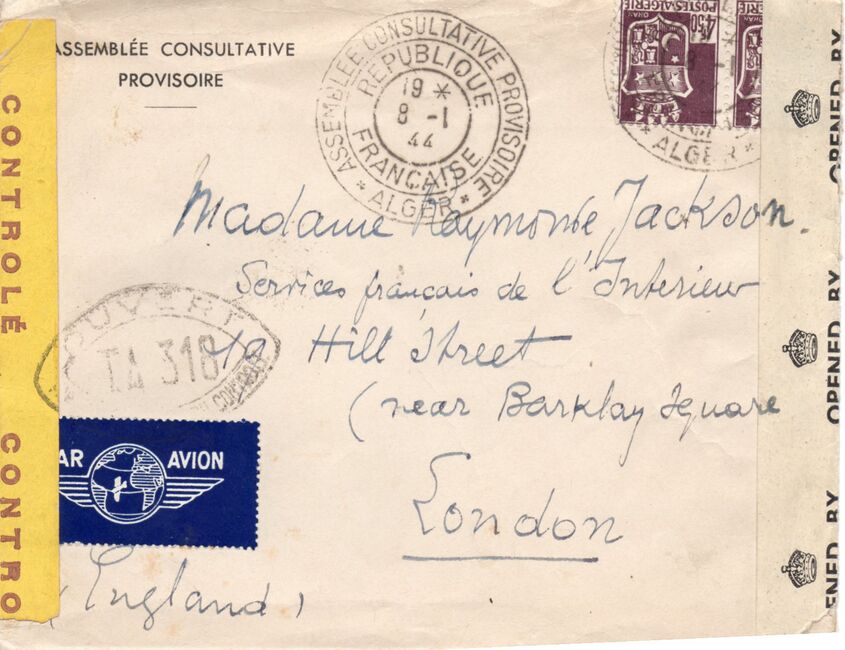 ASSEMBLÉE CONSULTATIVE
PROVISOIRE
ASSEMBLÉE CONSULTATIVE PROVISOIRE
RÉPUBLIQUE
19 *
8 -1
44
FRANÇAISE
* ALGER *
4F50
POSTES ALGERIE
ORAN
* ALGER *
Madame Raymonde Jackson.
Services français de l'Interieur
1a Hill Street
(near Barklay Square
London
(England)
OUVERT
TA 318
PAR AVION
CONTROLÉ
CONTRO
OPENED BY
OPENED BY
OPENED BY
ENED BY